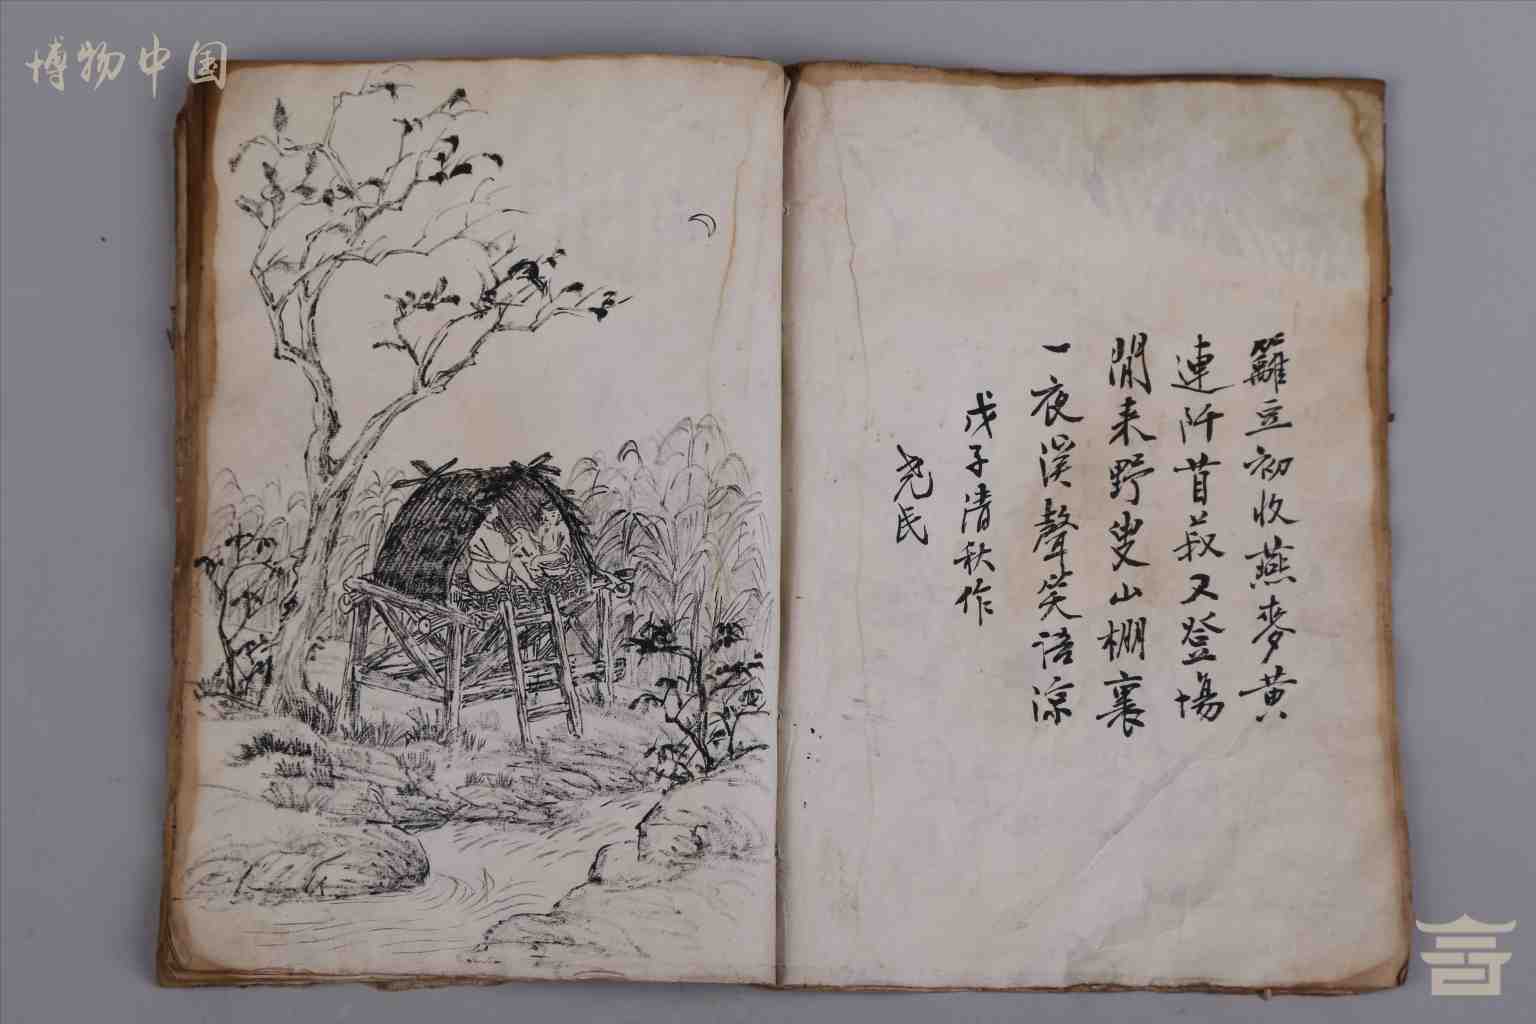 博物中国
籬豆初收燕麥黄
連阡首菽又登場
閒来野叟山棚裏
一夜溪聲笑語凉
戊子清秋作
尧民